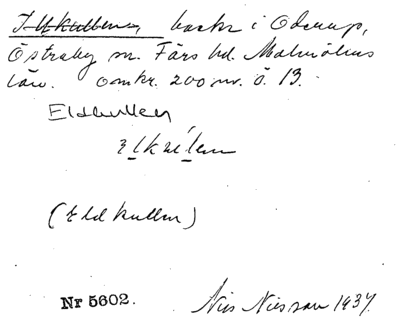 backe i Oderup,
Östraby sn. Färs hd. Malmöhus
län. omkr. 200 m. ö. 13.
Eldkullen
(Eldkullen)
Nr 5602. Nils Nilsson 1937.